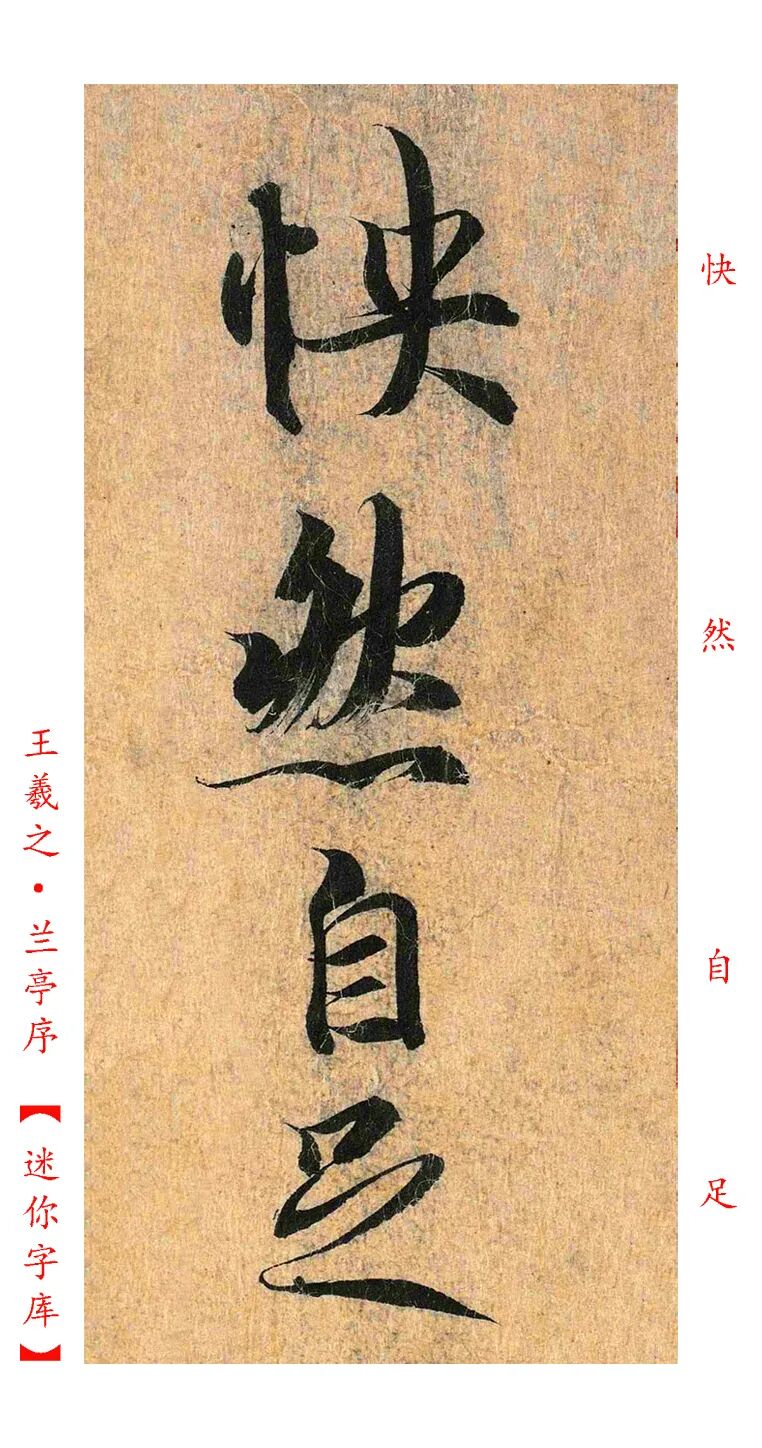 快然自足
怏然自足
王羲之·兰亭序【迷你字库】